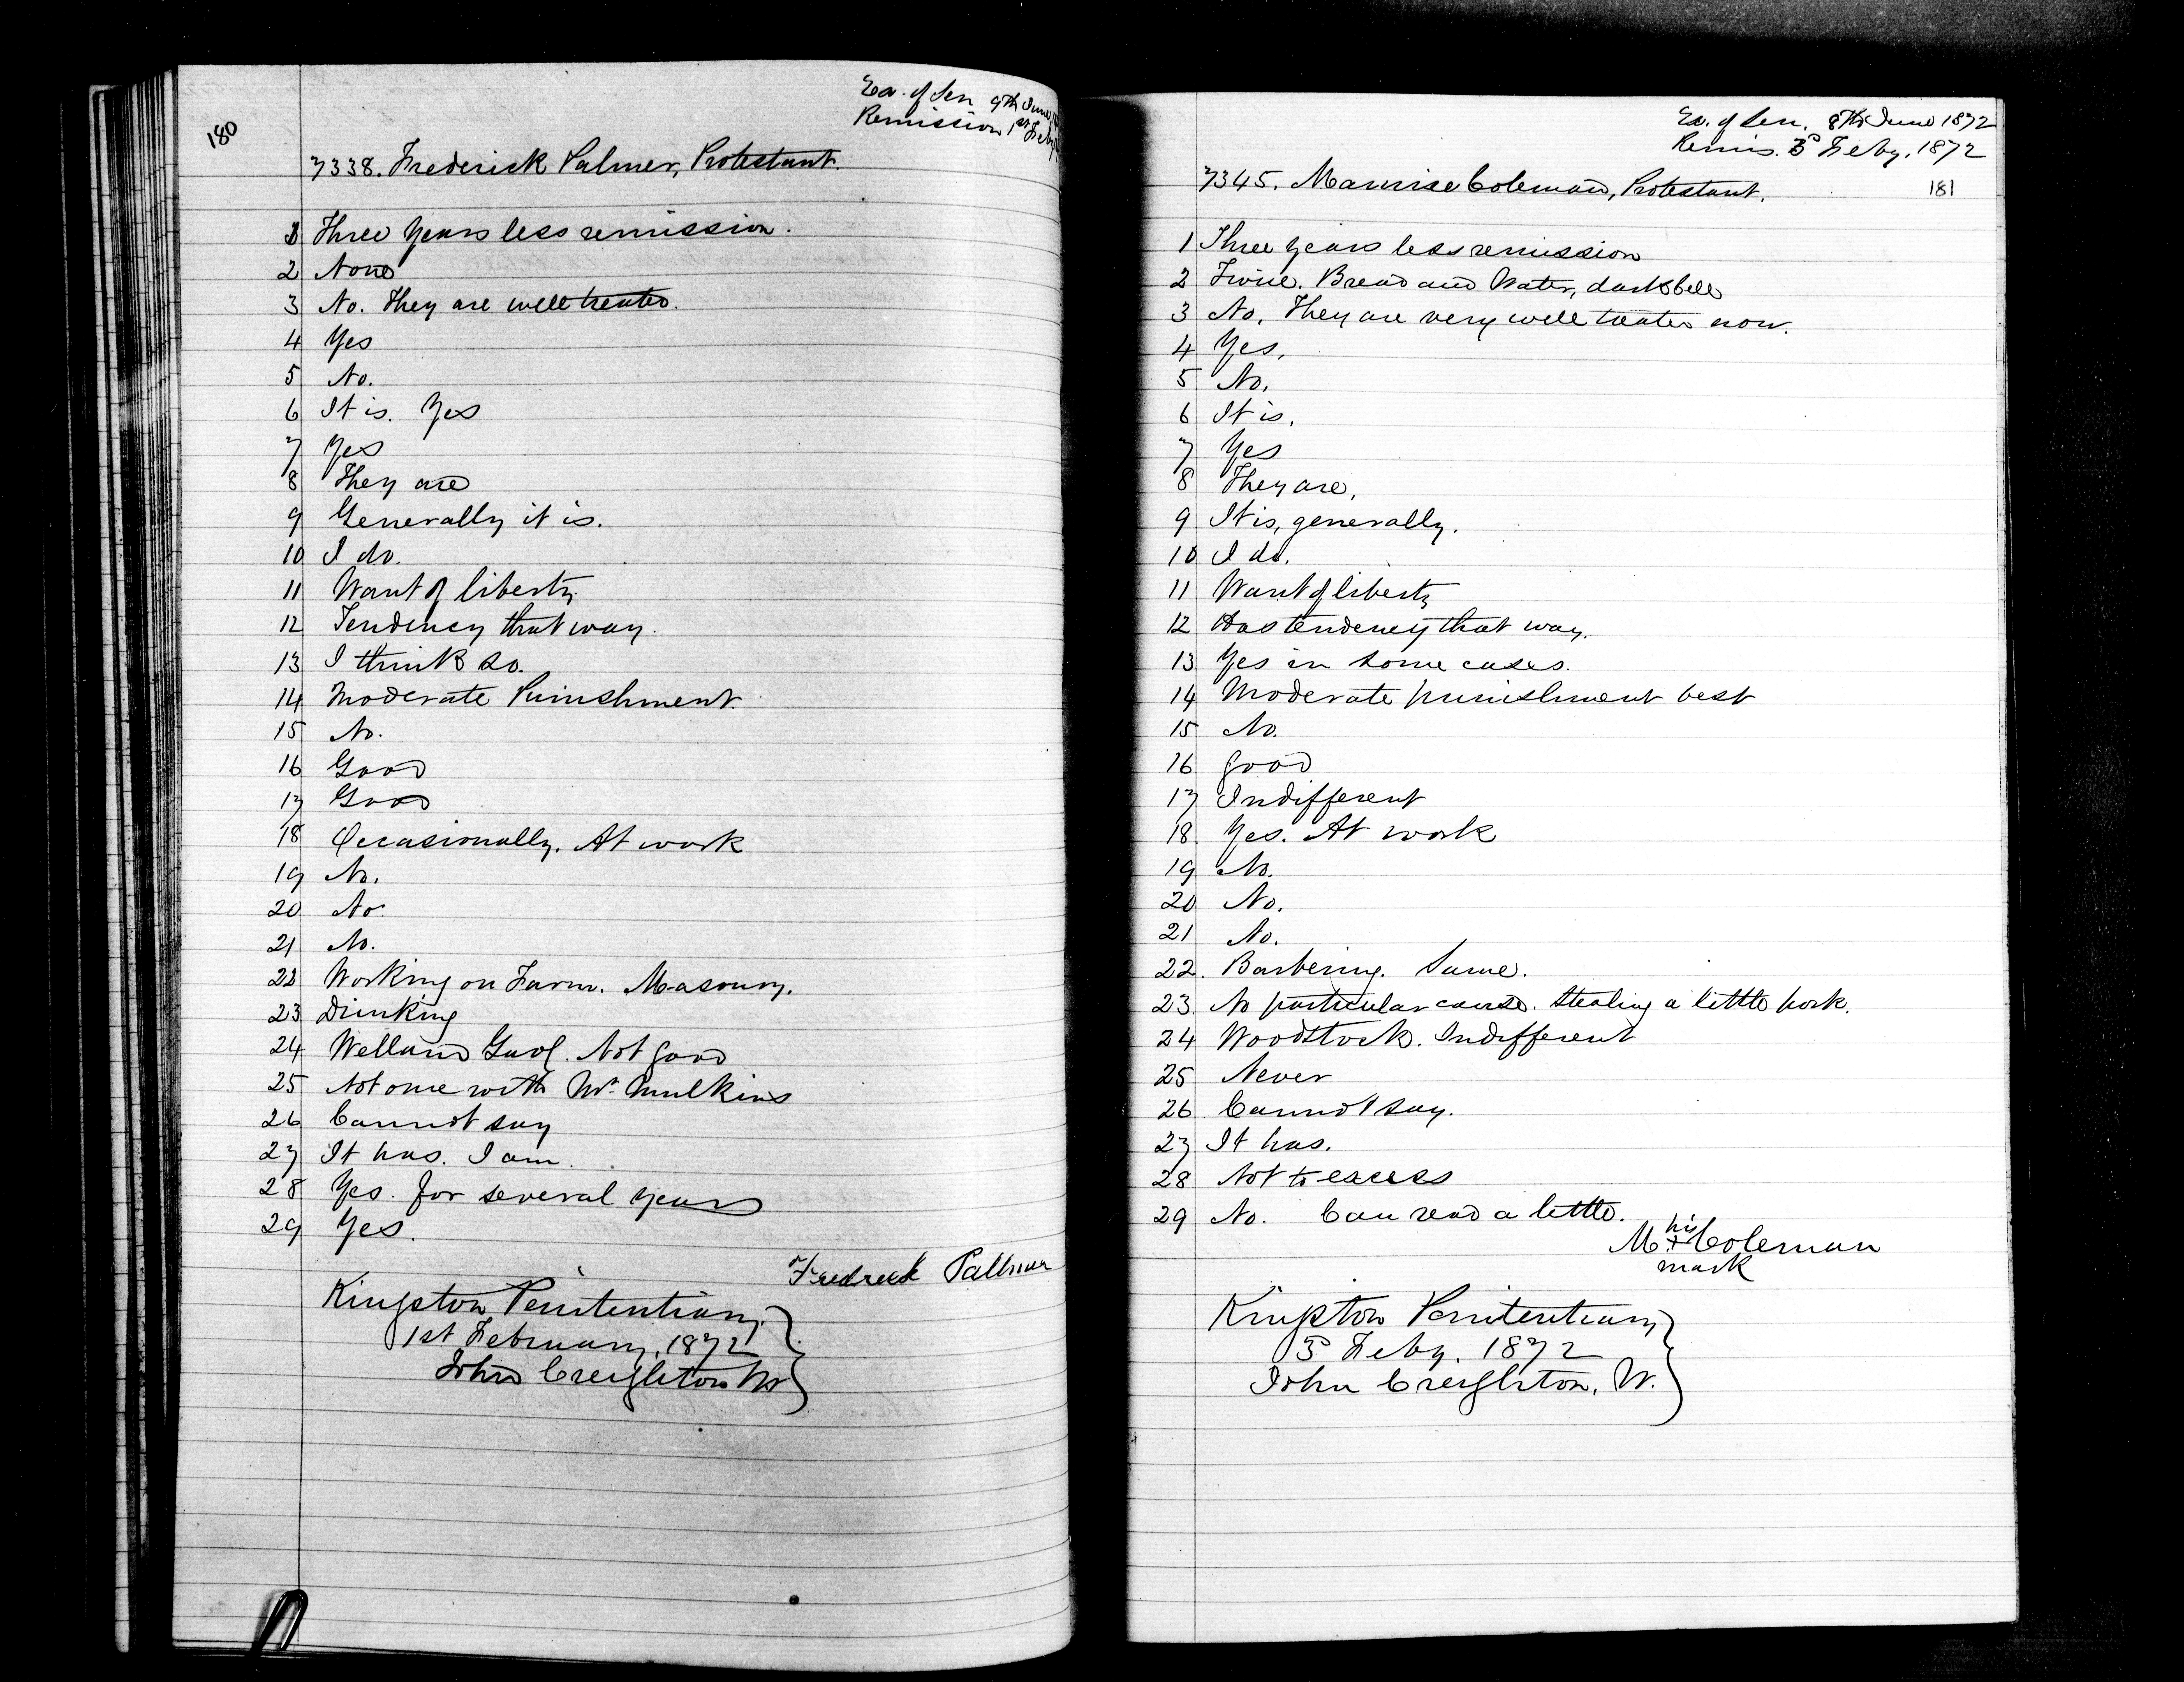 180
Ex. of Sen 9th June
Remission 1st Feby
7338. Frederick Palmer, Protestant.
1 Three years less remission.
2 None
3 No. They are well treated.
4 Yes
5 No.
6 It is. Yes
7 Yes
8 They are
9 Generally it is.
10 I do.
11 Want of liberty
12 Tendency that way.
13 I think so.
14 Moderate Punishment.
15 No.
16 Good
17 Good
18 Occasionally. At work
19 No.
20 No.
21 No.
22 Working on Farm. Masonry.
23 Drinking
24 Welland Gaol. Not good
25 Not one with Mr. Mulkins
26 Cannot say
27 It has. I am.
28 Yes. for several years
29 Yes.
Fredreck Pallmer
Kingston Penitentiary
1st February, 1872
John Creighton W
Ex. of Sen. 8th June 1872
Remis. 3d Feby. 1872
181
7345. Maurise Coleman, Protestant.
1 Three years less remission
2 Twice. Bread and Water, dark Cell
3 No. They are very well treated now.
4 Yes.
5 No.
6 It is.
7 Yes
8 They are.
9 It is, generally.
10 I do.
11 Want of liberty
12 Has tendency that way.
13 Yes in some cases.
14 Moderate punishment best
15 No.
16 good
17 Indifferent
18 Yes. At work
19 No.
20 No.
21 No.
22. Barbering. Same.
23. No particular cause. Stealing a little pork.
24 Woodstock. Indifferent
25 Never
26 Cannot say.
27 It has.
28 Not to excess
29 No. Can read a little.
his
M + Coleman
mark
Kingston Penitentiary
3d Feby. 1872
John Creighton, W.